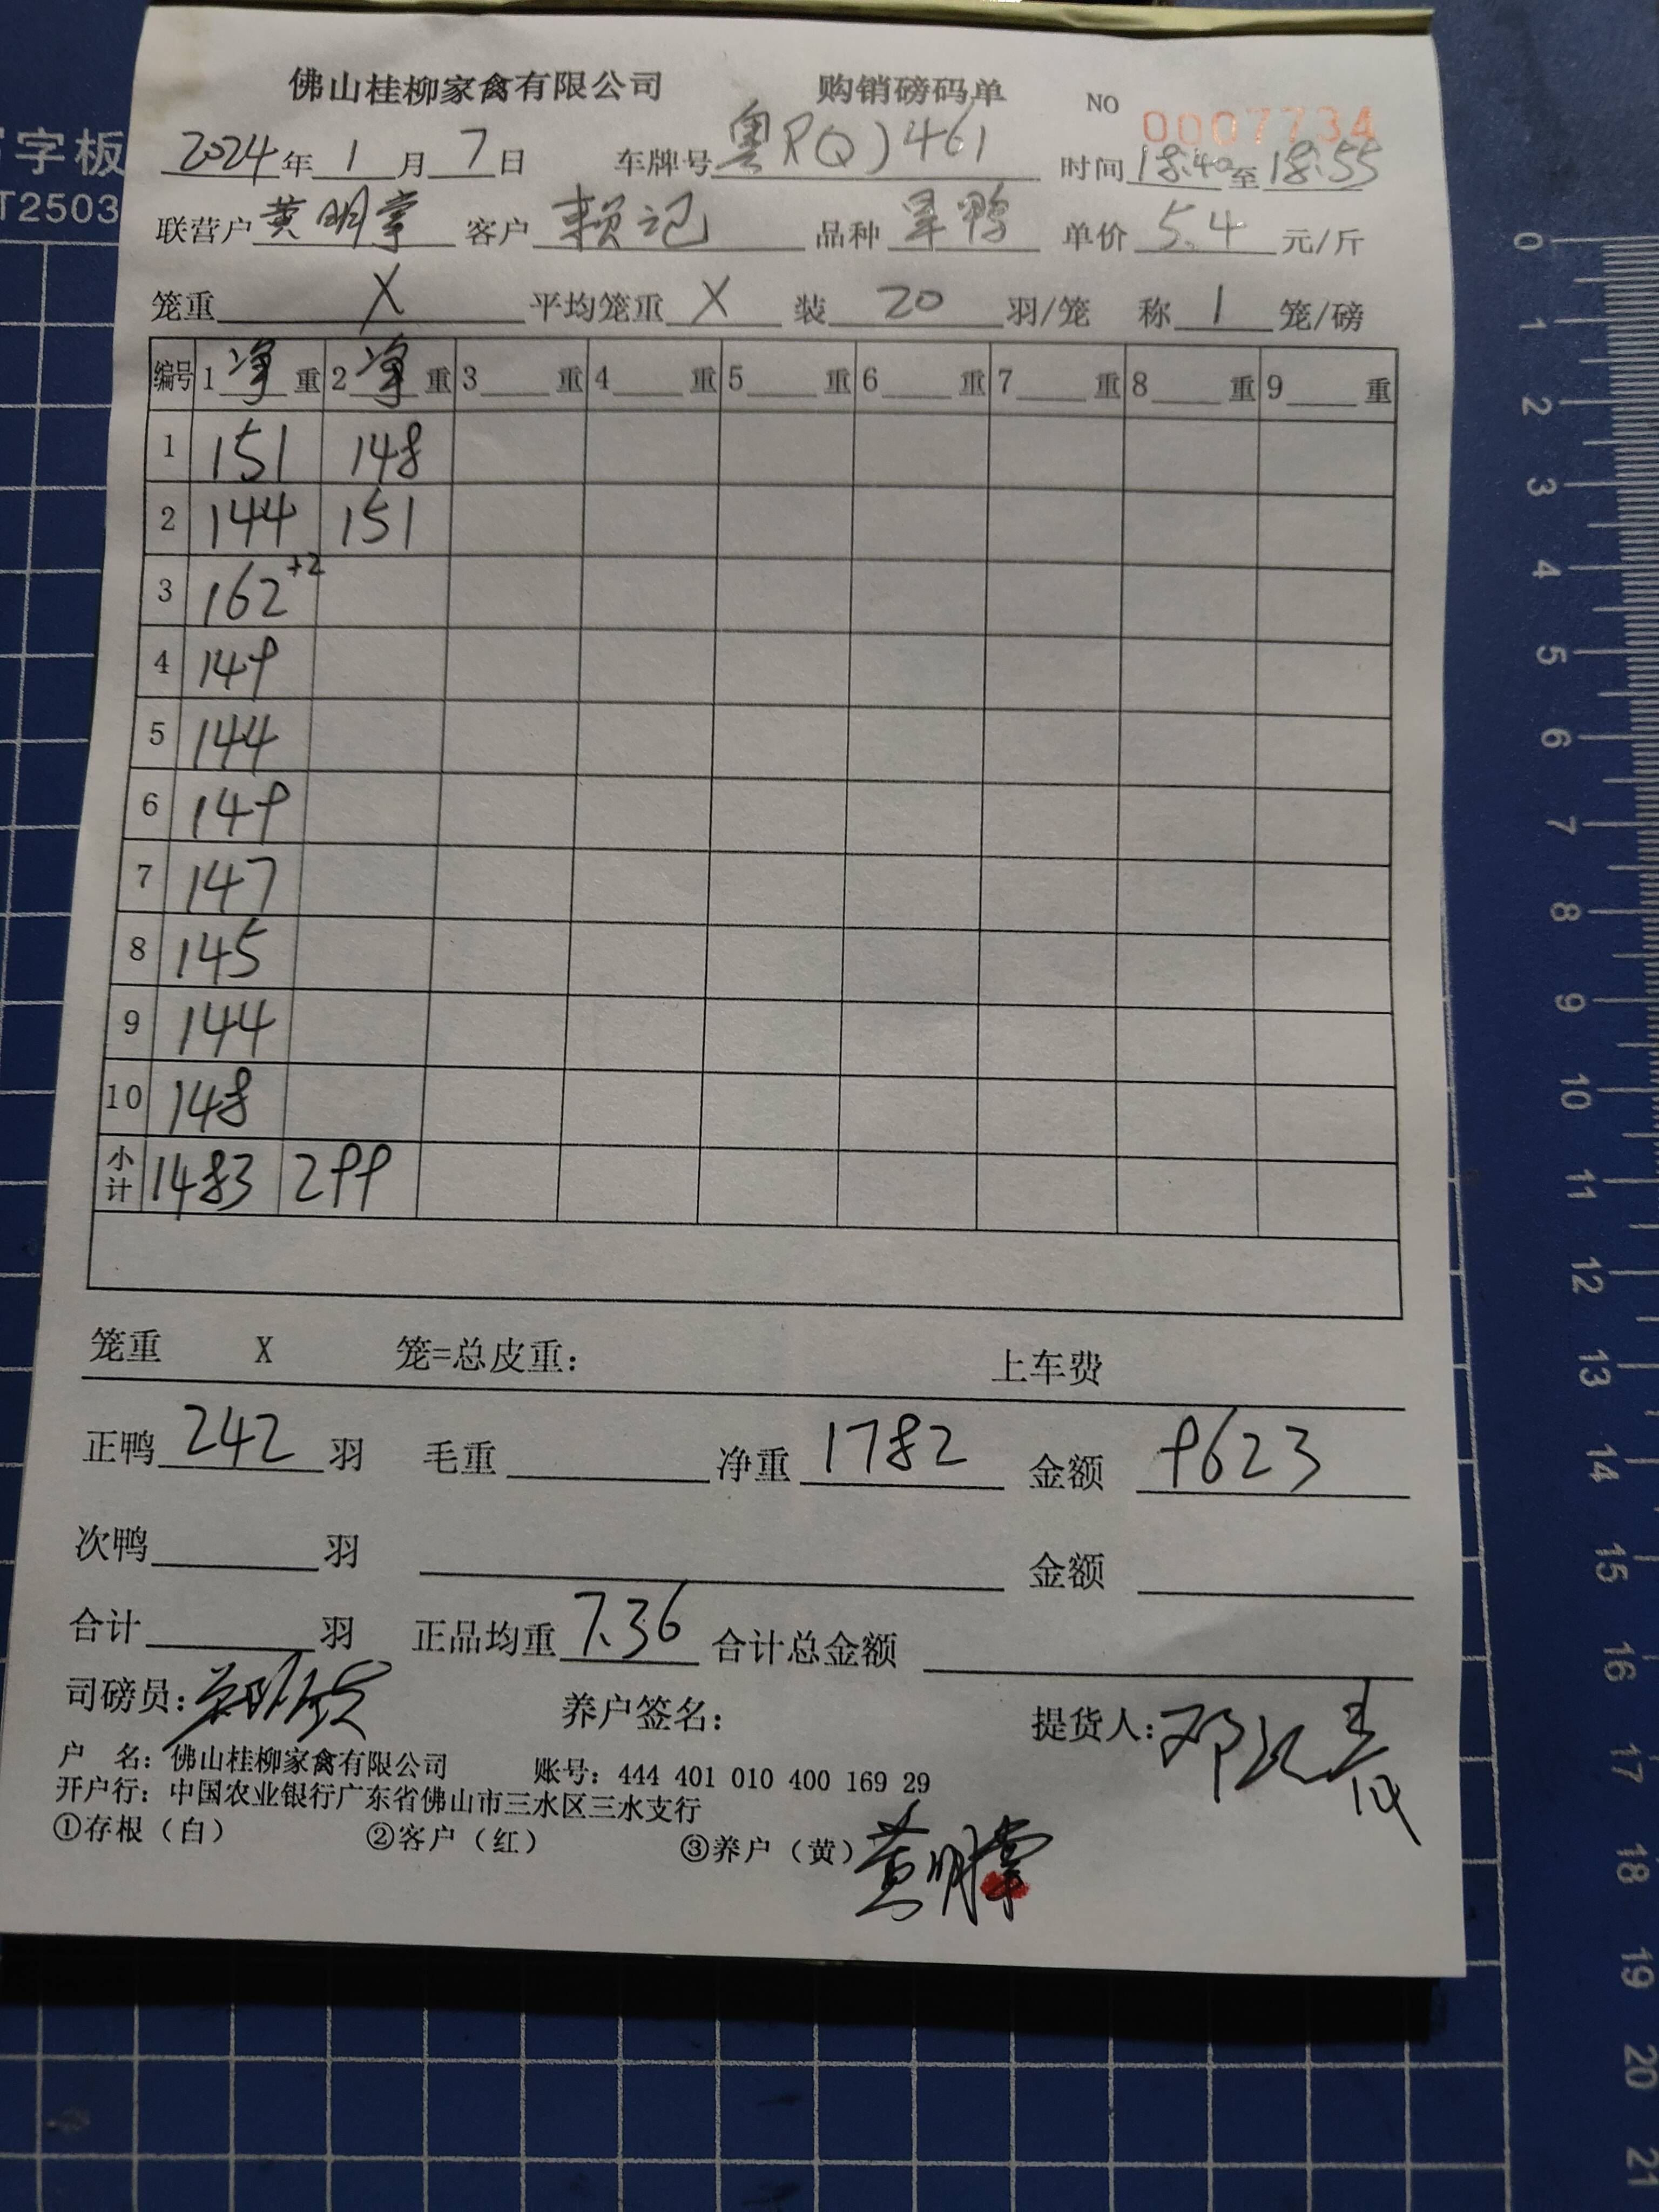 字板
T2503
佛山桂柳家禽有限公司 购销磅码单 NO 0007734
2024年1月7日 车牌号粤RQJ461 时间18:40至18:55
联营户黄明掌 客户赖记 品种旱鸭 单价5.4元/斤
笼重X 平均笼重X 装20羽/笼 称1笼/磅
编号 1净重 2净重 3重 4重 5重 6重 7重 8重 9重
1 151 148
2 144 151
3 162+2
4 149
5 144
6 149
7 147
8 145
9 144
10 148
小计 1483 299
笼重 X 笼=总皮重: 上车费
正鸭242羽 毛重 净重1782 金额9623
次鸭 羽 金额
合计 羽 正品均重7.36 合计总金额
司磅员: 养户签名: 提货人:
户 名: 佛山桂柳家禽有限公司 账号: 444 401 010 400 169 29
开户行: 中国农业银行广东省佛山市三水区三水支行
①存根（白） ②客户（红） ③养户（黄） 黄明掌
0
1
2
3
4
5
6
7
8
9
10
11
12
13
14
15
16
17
18
19
20
21